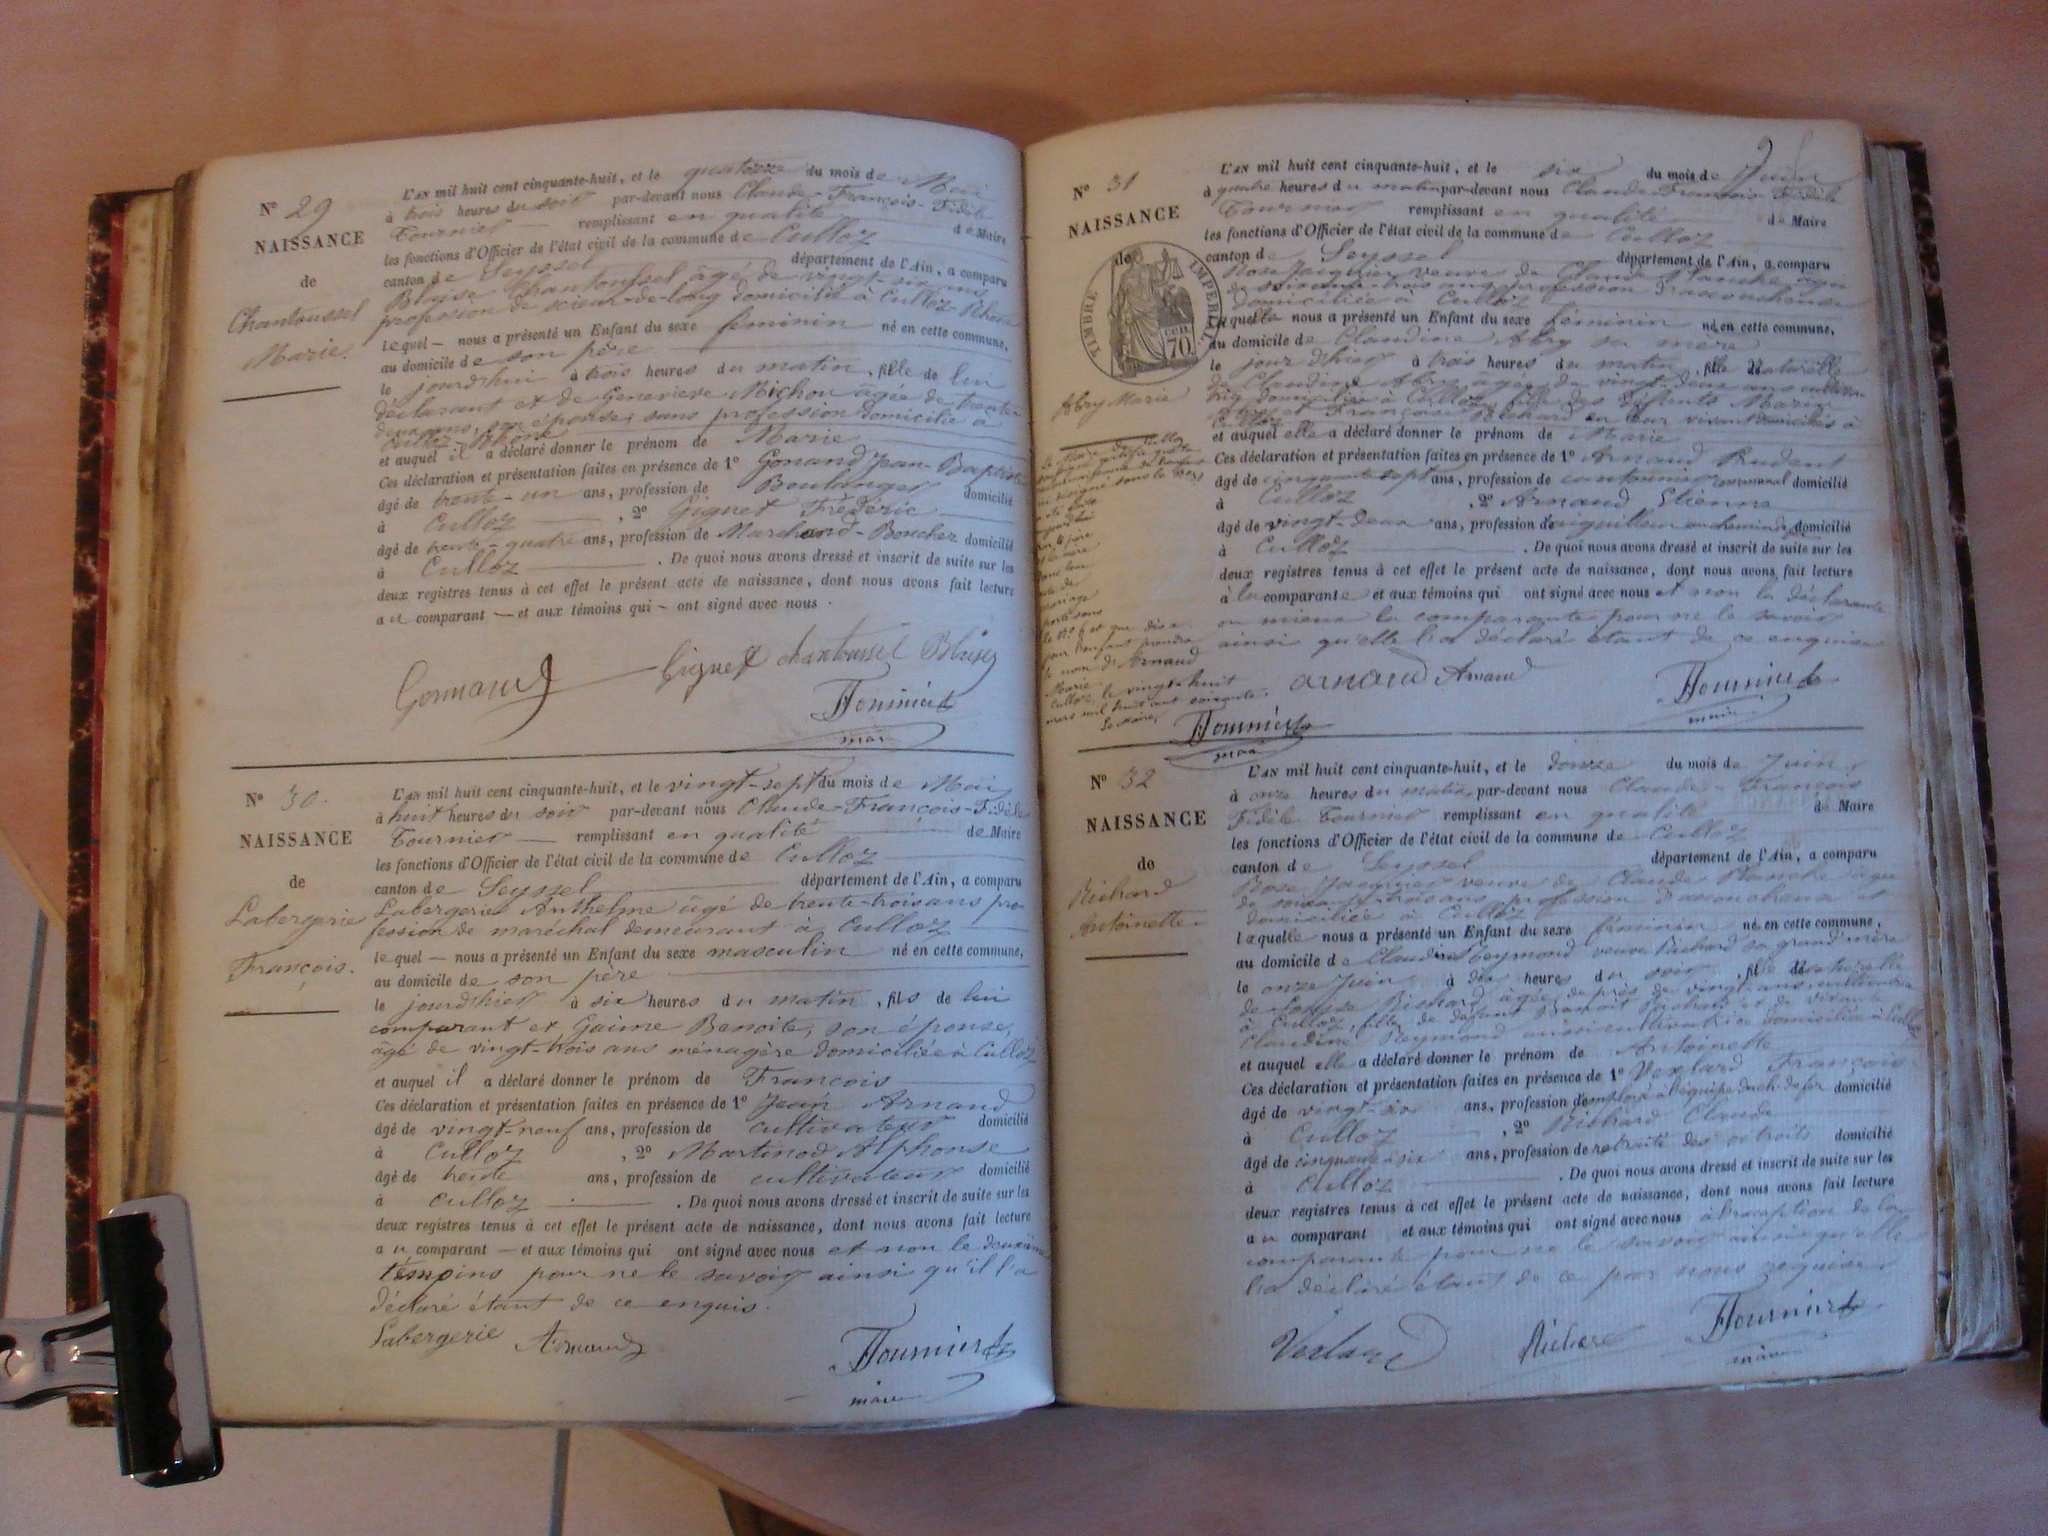 N° 29
NAISSANCE
de
Chantoussel
Marie.
L'AN mil huit cent cinquante-huit, et le quatorze du mois de Mai
à trois heures du soir par-devant nous Claude-François-Fidèle
Fournier remplissant en qualité de Maire
les fonctions d'Officier de l'état civil de la commune de Culloz
canton de Seyssel département de l'Ain, a comparu
Blaise Chantoussel âgé de vingt-six ans
profession de scieur-de-long domicilié à Culloz-Rhône
lequel nous a présenté un Enfant du sexe féminin né en cette commune,
au domicile de son père
le jourd'hui à trois heures du matin, fille de lui
déclarant et de Genevieve Michon âgée de trente
deux ans, son épouse, sans profession domicilié à
Culloz-Rhône
et auquel il a déclaré donner le prénom de Marie
Ces déclaration et présentation faites en présence de 1° Gonand Jean-Baptiste
âgé de trente-un ans, profession de Boulanger domicilié
à Culloz, 2° Giguet Fréderic
âgé de trente-quatre ans, profession de Marchand-Boucher domicilié
à Culloz. De quoi nous avons dressé et inscrit de suite sur les
deux registres tenus à cet effet le présent acte de naissance, dont nous avons fait lecture
au comparant et aux témoins qui ont signé avec nous.
Gonnand Giguet Chantoussel Blaise
Fournier
maire
N° 30.
NAISSANCE
de
Labergerie
François.
L'AN mil huit cent cinquante-huit, et le vingt-sept du mois de Mai
à huit heures du soir par-devant nous Claude-François-Fidèle
Fournier remplissant en qualité de Maire
les fonctions d'Officier de l'état civil de la commune de Culloz
canton de Seyssel département de l'Ain, a comparu
Labergerie Anthelme âgé de trente-trois ans pro-
fession de maréchal demeurant à Culloz
lequel nous a présenté un Enfant du sexe masculin né en cette commune,
au domicile de son père
le jourd'hier à six heures du matin, fils de lui
comparant et Gaime Benoite, son épouse,
âgé de vingt-trois ans ménagère domiciliée à Culloz
et auquel il a déclaré donner le prénom de François
Ces déclaration et présentation faites en présence de 1° Jean Arnaud
âgé de vingt-neuf ans, profession de cultivateur domicilié
à Culloz, 2° Martinod Alphonse
âgé de trente ans, profession de cultivateur domicilié
à Culloz. De quoi nous avons dressé et inscrit de suite sur les
deux registres tenus à cet effet le présent acte de naissance, dont nous avons fait lecture
au comparant et aux témoins qui ont signé avec nous et non le deuxième
témoins pour ne le savoir ainsi qu'il l'a
déclaré étant de ce enquis.
Labergerie Arnaud
Fournier
maire
N° 31
NAISSANCE
de
TIMBRE IMPERIAL
CEN.
70
Abry Marie
L'AN mil huit cent cinquante-huit, et le six du mois de Juin
à quatre heures du matin par-devant nous Claude François Fidèle
Fournier remplissant en qualité de Maire
les fonctions d'Officier de l'état civil de la commune de Culloz
canton de Seyssel département de l'Ain, a comparu
Rose Jacquier veuve de Claude Planche âgée
de soixante-trois ans profession d'accoucheuse
domiciliée à Culloz
laquelle nous a présenté un Enfant du sexe féminin né en cette commune,
au domicile de Claudine Abry sa mère
le jourd'hier à trois heures du matin, fille naturelle
de Claudine Abry âgée de vingt-deux ans
domiciliée à Culloz fille des défunts
Françoise Richard en leur vivant domiciliés à
Culloz
et auquel elle a déclaré donner le prénom de Marie
Ces déclaration et présentation faites en présence de 1° Arnaud Prudent
âgé de cinquante sept ans, profession de cantonnier communal domicilié
à Culloz, 2° Arnaud Etienne
âgé de vingt-deux ans, profession d'aiguilleur au chemin de domicilié
à Culloz. De quoi nous avons dressé et inscrit de suite sur les
deux registres tenus à cet effet le présent acte de naissance, dont nous avons fait lecture
à la comparante et aux témoins qui ont signé avec nous et non la déclarante
ou mieux la comparante pour ne le savoir
ainsi qu'elle l'a déclaré étant de ce enquise
le Maire
mariage
porté sous
le N° 6 et que
l'enfant prendra
le nom de Arnaud
Marie
Culloz, le vingt-huit
mars mil huit cent soixante.
Le Maire,
Fournier
maire
Arnaud Arnaud
Fournier
maire
N° 32
NAISSANCE
de
Richard
Antoinette
L'AN mil huit cent cinquante-huit, et le douze du mois de Juin
à onze heures du matin par-devant nous Claude-François
Fidèle Fournier remplissant en qualité de Maire
les fonctions d'Officier de l'état civil de la commune de Culloz
canton de Seyssel département de l'Ain, a comparu
Rose Jacquier veuve de Claude Planche âgée
de soixante-trois ans profession d'accoucheuse
domiciliée à Culloz
laquelle nous a présenté un Enfant du sexe féminin né en cette commune,
au domicile de Claudine Reymond veuve Richard sa grand'mère
le onze Juin à dix heures du soir, fille naturelle
de Louise Richard âgée de près de vingt ans cultivatrice
à Culloz, fille de défunt Benoit Richard et de vivante
Claudine Reymond aussi cultivatrice domiciliée à Culloz
et auquel elle a déclaré donner le prénom de Antoinette
Ces déclaration et présentation faites en présence de 1° Verlard François
âgé de vingt-six ans, profession d'employé à l'équipe du ch. de fer domicilié
à Culloz, 2° Richard Claude
âgé de cinquante-six ans, profession de retraité des octrois domicilié
à Culloz. De quoi nous avons dressé et inscrit de suite sur les
deux registres tenus à cet effet le présent acte de naissance, dont nous avons fait lecture
au comparant et aux témoins qui ont signé avec nous à l'exception de la
comparante pour ne le savoir ainsi qu'elle
l'a déclaré étant de ce par nous requise
Verlard Richard
Fournier
maire